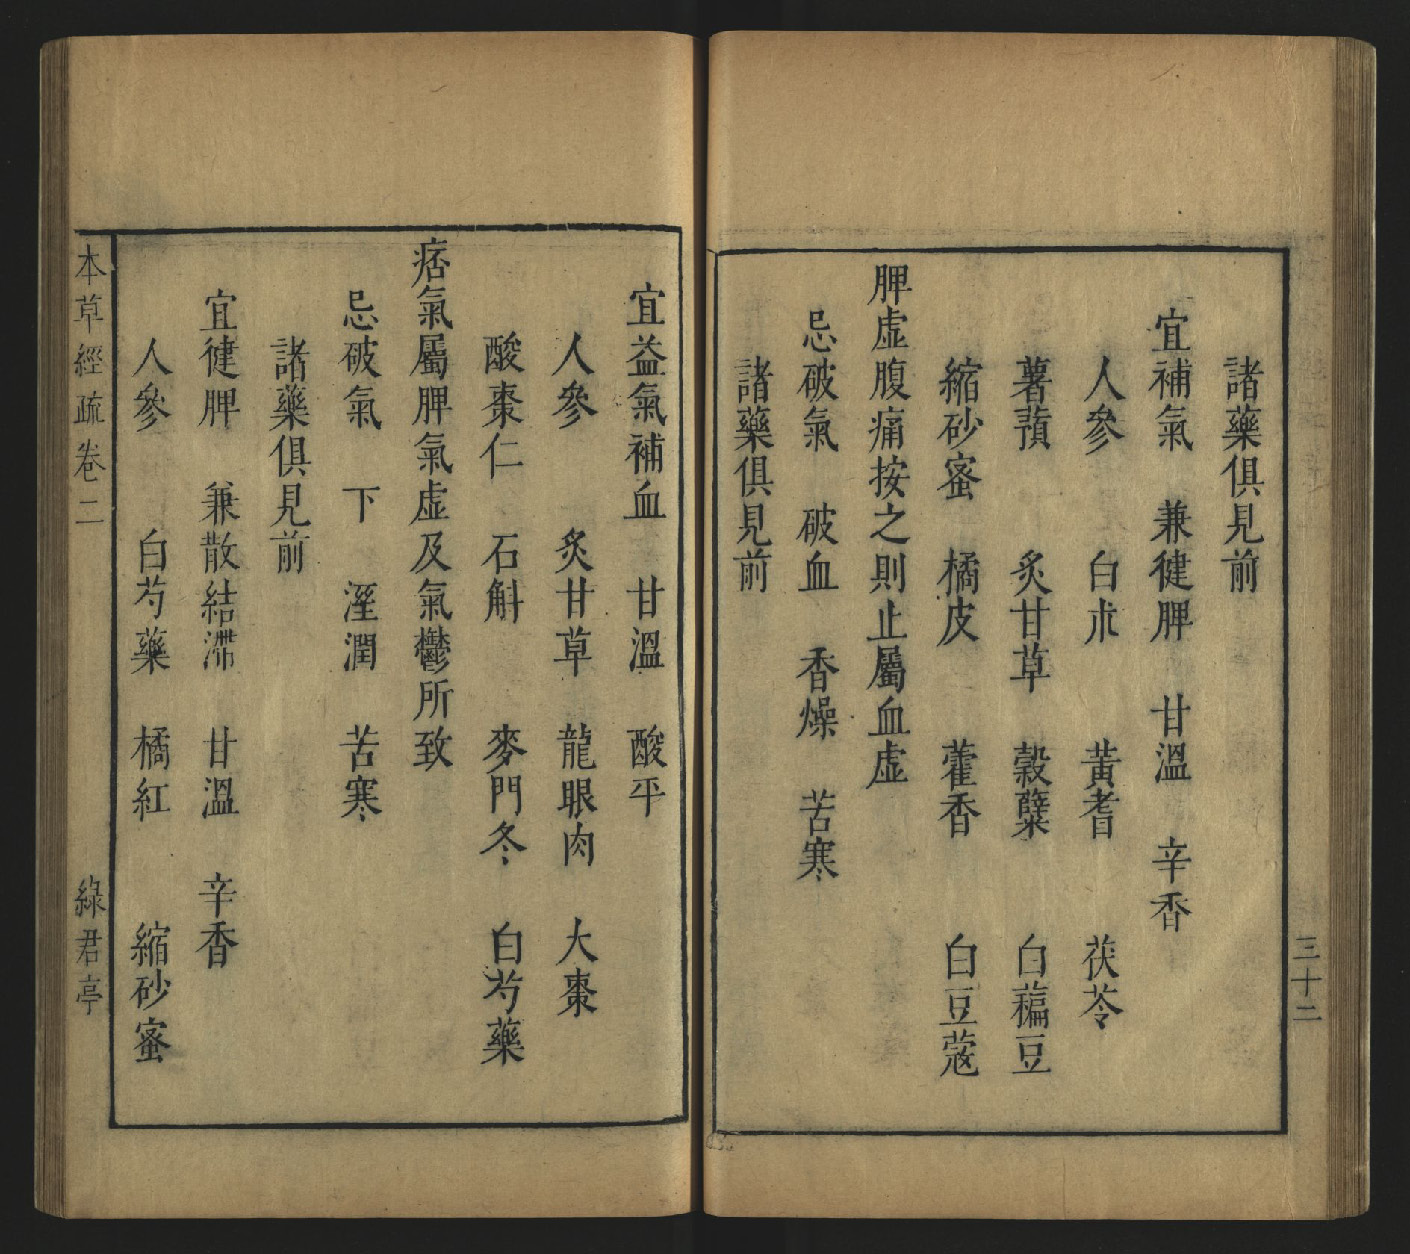 諸藥俱見前
宜補氣　兼健脾　甘溫　辛香
人參　白朮　黃耆　茯苓
薯蕷　炙甘草　穀櫱　白藊豆
縮砂蜜　橘皮　藿香　白豆蔻
脾虛腹痛按之則止屬血虛
忌破氣　破血　香燥　苦寒
諸藥俱見前
三十二
宜益氣補血　甘溫　酸平
人參　炙甘草　龍眼肉　大棗
酸棗仁　石斛　麥門冬　白芍藥
痞氣屬脾氣虛及氣鬱所致
忌破氣　下　溼潤　苦寒
諸藥俱見前
宜健脾　兼散結滯　甘溫　辛香
人參　白芍藥　橘紅　縮砂蜜
本草經疏卷二　綠君亭